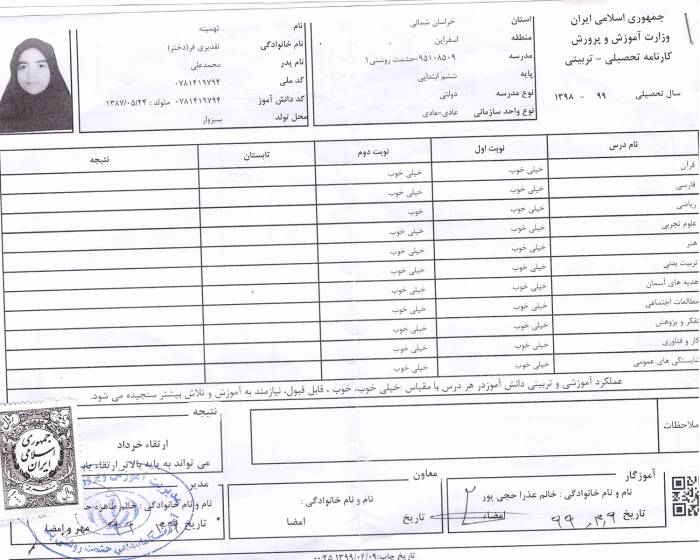 جمهوری اسلامی ایران
وزارت آموزش و پرورش
کارنامه تحصیلی - تربیتی
سال تحصیلی ۹۹ - ۱۳۹۸
استان خراسان شمالی
منطقه اسفراین
مدرسه ۹۵۱۰۸۵۰۹-حشمت روشنی۱
پایه ششم ابتدایی
نوع مدرسه دولتی
نوع واحد سازمانی عادی-عادی
نام تهمینه
نام خانوادگی تقدیری فر(دختر)
نام پدر محمدعلی
کد ملی ۰۷۸۱۴۱۹۷۹۴
کد دانش آموز ۰۷۸۱۴۱۹۷۹۴ متولد : ۱۳۸۷/۰۵/۲۴
محل تولد سبزوار
نام درس نوبت اول نوبت دوم تابستان نتیجه
قرآن خیلی خوب خیلی خوب
فارسی خیلی خوب خیلی خوب
ریاضی خیلی خوب خوب
علوم تجربی خیلی خوب خیلی خوب
هنر خیلی خوب خیلی خوب
تربیت بدنی خیلی خوب خیلی خوب
هدیه های آسمان خیلی خوب خیلی خوب
مطالعات اجتماعی خیلی خوب خیلی خوب
تفکر و پژوهش خیلی خوب خیلی خوب
کار و فناوری خیلی خوب خیلی خوب
شایستگی های عمومی خیلی خوب خیلی خوب
عملکرد آموزشی و تربیتی دانش آموزدر هر درس با مقیاس :خیلی خوب، خوب ، قابل قبول، نیازمند به آموزش و تلاش بیشتر سنجیده می شود.
ملاحظات
نتیجه
ارتقاء خرداد
می تواند به پایه بالاتر ارتقاء یابد
آموزگار
نام و نام خانوادگی : خانم عذرا حجی پور
تاریخ ۹۹,۳,۹ امضاء
معاون
نام و نام خانوادگی :
تاریخ امضا
مدیر
نام و نام خانوادگی : خانم طاهره
تاریخ مهر و امضا
جمهوری
اسلامی
ایران
تاریخ چاپ:۱۳۹۹/۰۲/۰۹ ۰۰:۲۵